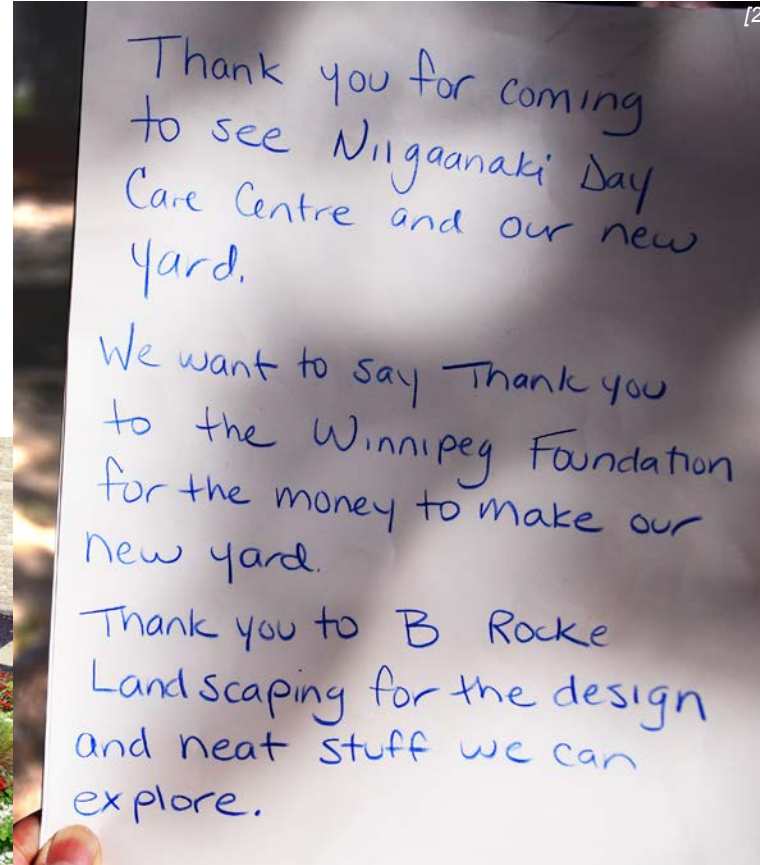 [2
Thank you for coming
to see Niigaanaki Day
Care Centre and our new
yard.
We want to say Thank you
to the Winnipeg Foundation
for the money to make our
new yard.
Thank you to B Rocke
Landscaping for the design
and neat stuff we can
explore.